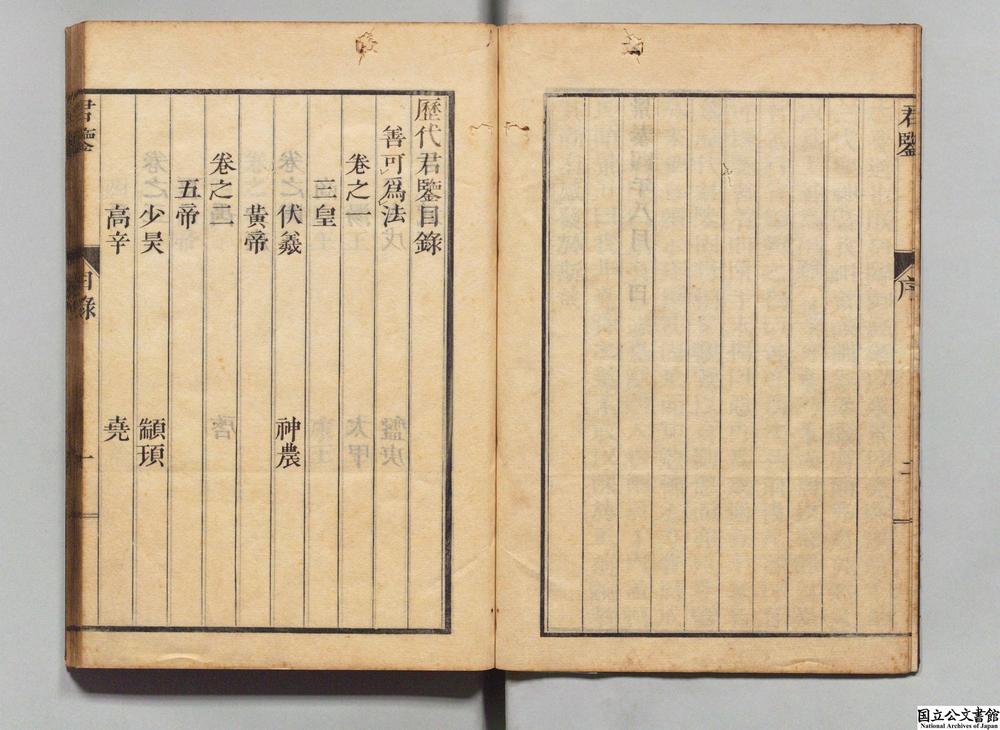 君鑒
序
二
歷代君鑒目錄
善可爲法
卷之一
三皇
伏羲 神農
黃帝
卷之二
五帝
少昊 顓頊
高辛 堯
君鑒
目錄
一
国立公文書館
National Archives of Japan